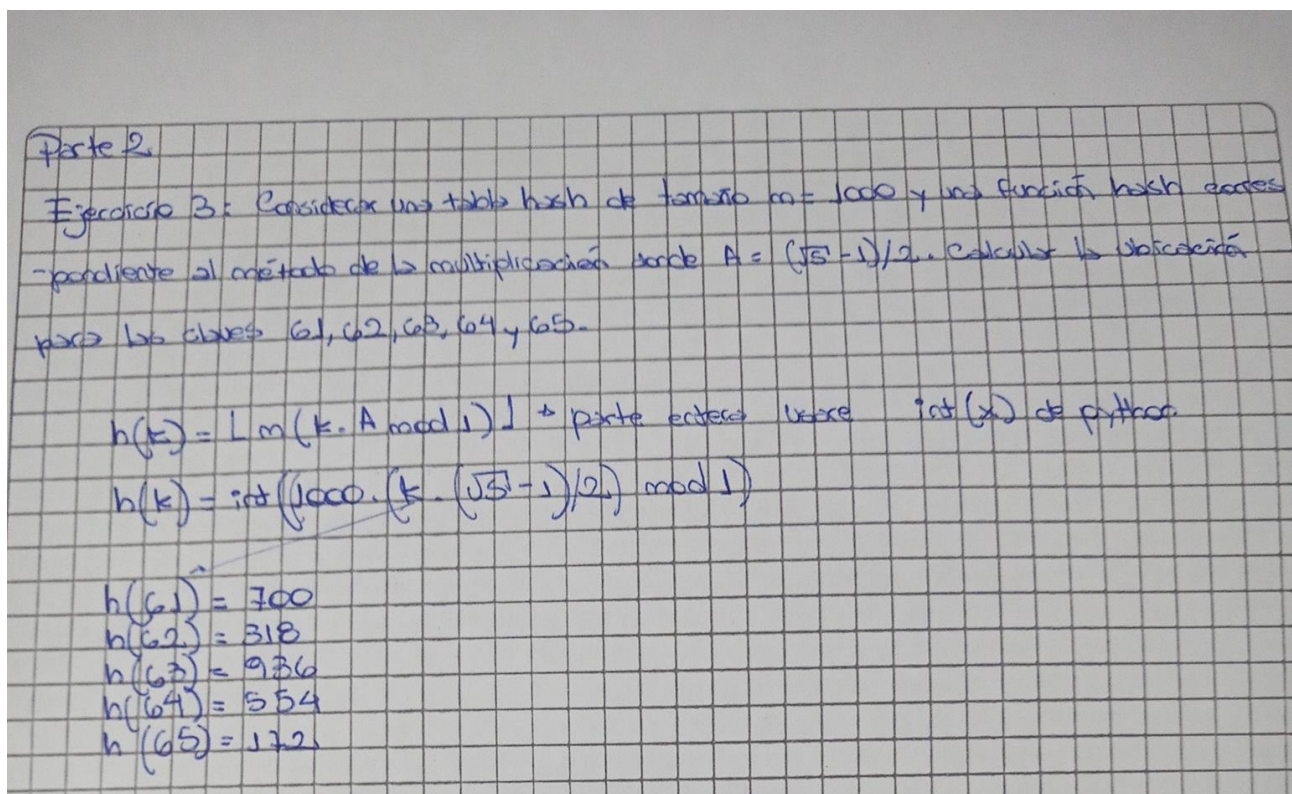 Parte 2
Ejercicio 3: Considerar una tabla hash de tamaño m = 1000 y una función hash corres
-pondiente al método de la multiplicación donde A = (√5 -1)/2. Calcular la ubicación
para las claves 61, 62, 63, 64 y 65.
h(k) = ⌊m(k. A mod 1)⌋ → parte entera usare int(x) de python
h(k) = int(1000. (k. (√5 -1)/2) mod 1)
h(61) = 700
h(62) = 318
h(63) = 936
h(64) = 554
h(65) = 172